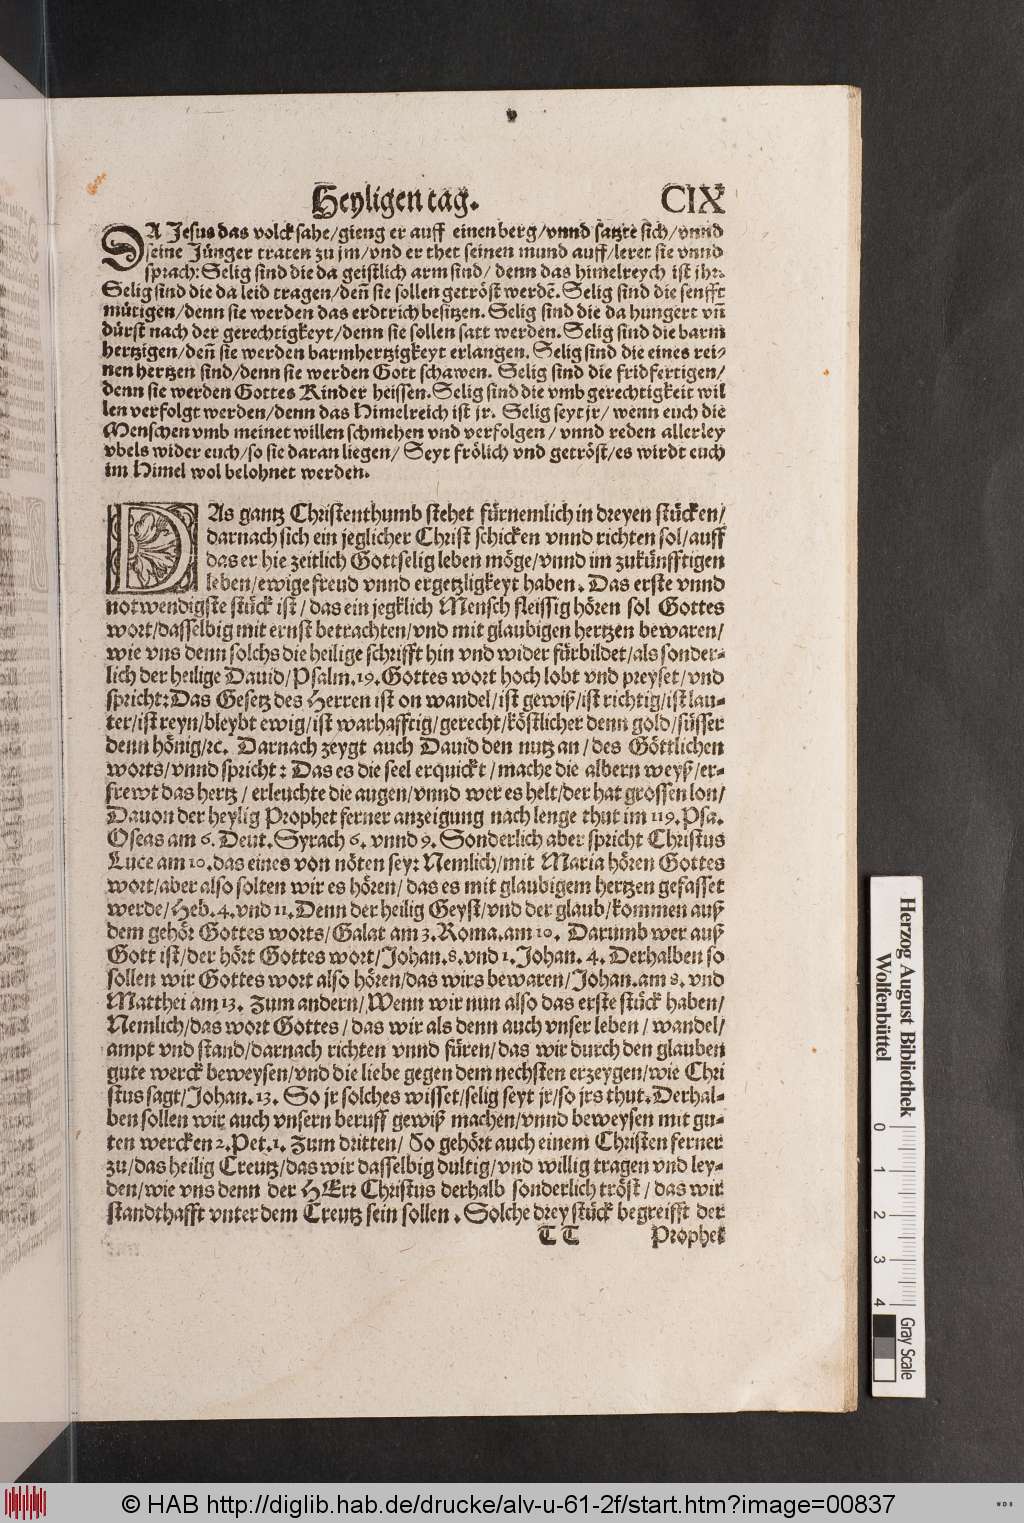 Heyligen tag. CIX
DA Jesus das volck sahe/gieng er auff einen berg/vnnd satzte sich/vnnd
seine Jünger traten zu jm/vnd er thet seinen mund auff/leret sie vnnd
sprach: Selig sind die da geistlich arm sind/ denn das himelreych ist jhr.
Selig sind die da leid tragen/deñ sie sollen getröst werdē. Selig sind die senfft
mütigen/denn sie werden das erdtrich besitzen. Selig sind die da hungert vñ
dürst nach der gerechtigkeyt/denn sie sollen satt werden. Selig sind die barm
hertzigen/deñ sie werden barmhertzigkeyt erlangen. Selig sind die eines rei-
nen hertzen sind/denn sie werden Gott schawen. Selig sind die fridfertigen/
denn sie werden Gottes Kinder heissen. Selig sind die vmb gerechtigkeit wil
len verfolgt werden/denn das Himelreich ist jr. Selig seyt jr/ wenn euch die
Menschen vmb meinet willen schmehen vnd verfolgen/ vnnd reden allerley
vbels wider euch/so sie daran liegen/ Seyt frölich vnd getröst/es wirdt euch
im Himel wol belohnet werden.
DAs gantz Christenthumb stehet fürnemlich in dreyen stücken/
darnach sich ein jeglicher Christ schicken vnnd richten sol/auff
das er hie zeitlich Gottselig leben möge/vnnd im zukünfftigen
leben/ewige freud vnnd ergetzligkeyt haben. Das erste vnnd
notwendigste stück ist/ das ein jegklich Mensch fleissig hören sol Gottes
wort/dasselbig mit ernst betrachten/vnd mit glaubigen hertzen bewaren/
wie vns denn solchs die heilige schrifft hin vnd wider fürbildet/als sonder-
lich der heilige Dauid/Psalm.19.Gottes wort hoch lobt vnd preyset/vnd
spricht:Das Gesetz des Herren ist on wandel/ist gewiß/ist richtig/ist lau-
ter/ist reyn/bleybt ewig/ist warhafftig/gerecht/köstlicher denn gold/süsser
denn hönig/ꝛc. Darnach zeygt auch Dauid den nutz an/ des Göttlichen
worts/vnnd spricht: Das es die seel erquickt/mache die albern weyß/er-
frewt das hertz/ erleuchte die augen/vnnd wer es helt/der hat grossen lon/
Dauon der heylig Prophet ferner anzeigung nach lenge thut im 119.Psa.
Oseas am 6. Deut. Syrach 6. vnnd 9. Sonderlich aber spricht Christus
Luce am 10.das eines von nöten sey: Nemlich/mit Maria hören Gottes
wort/aber also solten wir es hören/ das es mit glaubigem hertzen gefasset
werde/Heb.4.vnd 11.Denn der heilig Geyst/vnd der glaub/kommen auß
dem gehör Gottes worts/Galat am 3.Roma.am 10. Darumb wer auß
Gott ist/der hört Gottes wort/Johan.8.vnd 1.Johan. 4. Derhalben so
sollen wir Gottes wort also hören/das wirs bewaren/Johan.am 8. vnd
Matthei am 13. Zum andern/Wenn wir nun also das erste stück haben/
Nemlich/das wort Gottes/ das wir als denn auch vnser leben/ wandel/
ampt vnd stand/darnach richten vnnd füren/das wir durch den glauben
gute werck beweysen/vnd die liebe gegen dem nechsten erzeygen/wie Chri
stus sagt/Johan.13. So jr solches wisset/selig seyt jr/so jrs thut.Derhal-
ben sollen wir auch vnsern beruff gewiß machen/vnnd beweysen mit gu-
ten wercken 2.Pet.1. Zum dritten/ So gehört auch einem Christen ferner
zu/das heilig Creutz/das wir dasselbig dultig/vnd willig tragen vnd ley-
den/wie vns denn der HErr Christus derhalb sonderlich tröst/ das wir
standthafft vnter dem Creutz sein sollen. Solche drey stück begreifft der
T T Prophet
Herzog August Bibliothek
Wolfenbüttel
0 1 2 3 4 Gray Scale
© HAB http://diglib.hab.de/drucke/alv-u-61-2f/start.htm?image=00837